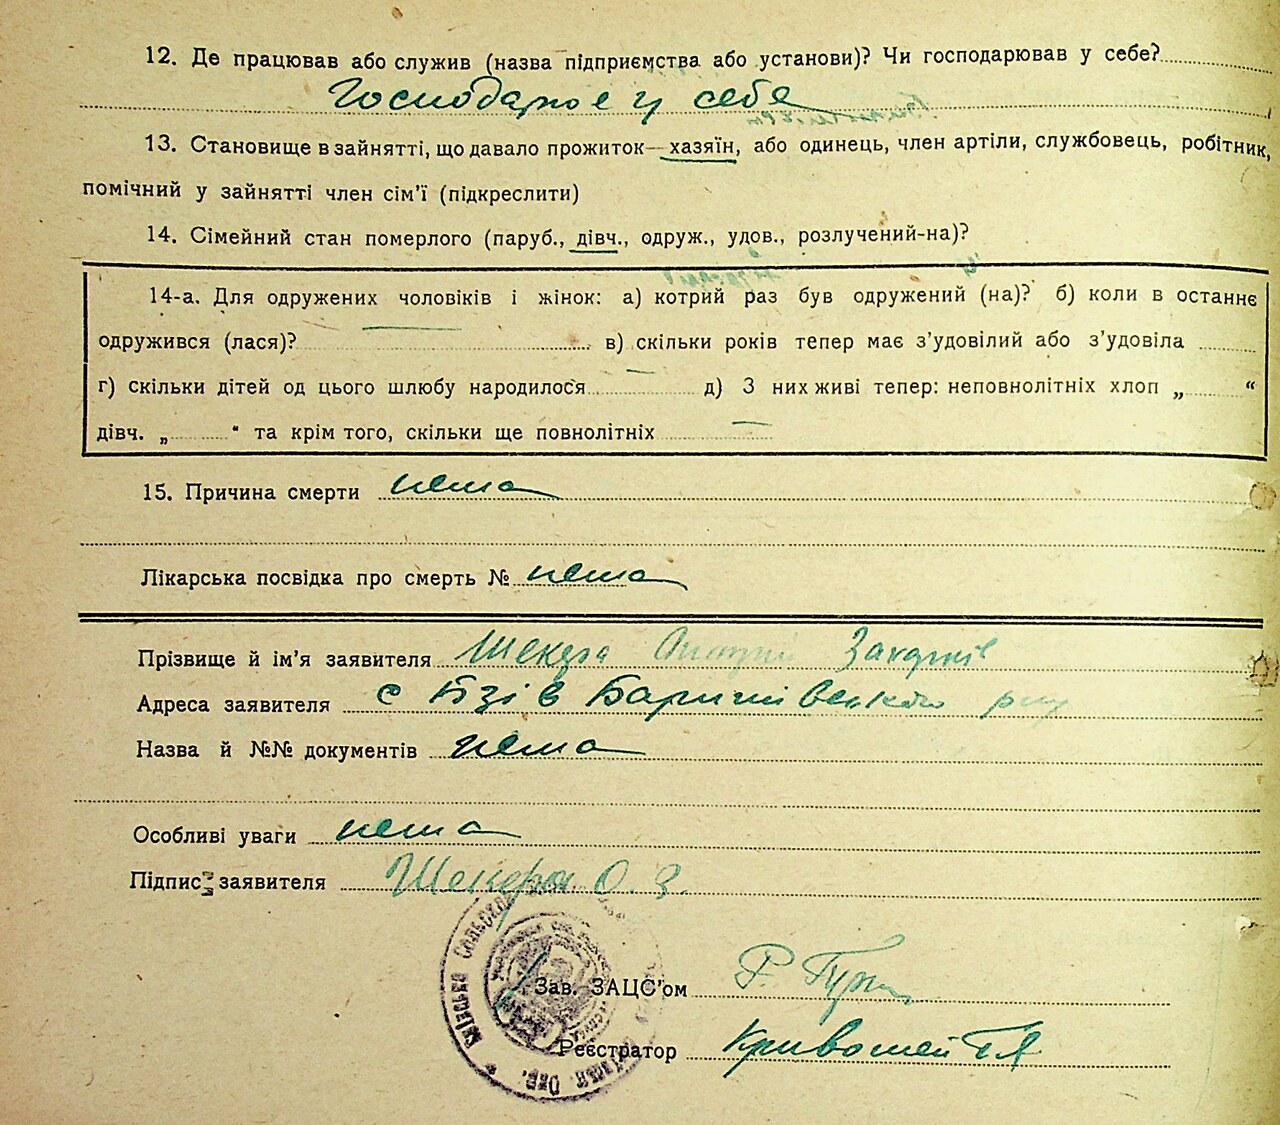 12. Де працював або служив (назва підприємства або установи)? Чи господарював у себе?
Господарює у себе
13. Становище в зайнятті, що давало прожиток—хазяїн, або одинець, член артіли, службовець, робітник,
помічний у зайнятті член сім'ї (підкреслити)
14. Сімейний стан померлого (паруб., дівч., одруж., удов., розлучений-на)?
14-а. Для одружених чоловіків і жінок: а) котрий раз був одружений (на)? б) коли в останнє
одружився (лася)? в) скільки років тепер має з'удовілий або з'удовіла
г) скільки дітей од цього шлюбу народилося д) З них живі тепер: неповнолітніх хлоп „ “
дівч. „ “ та крім того, скільки ще повнолітніх
15. Причина смерти нема
Лікарська посвідка про смерть № нема
Прізвище й ім'я заявителя Шекера Захарків
Адреса заявителя с Бзів Баришівського
Назва й №№ документів нема
Особливі уваги нема
Підпис заявителя Шекера О. З.
Зав. ЗАЦС'ом Р.
Реєстратор Кривошей